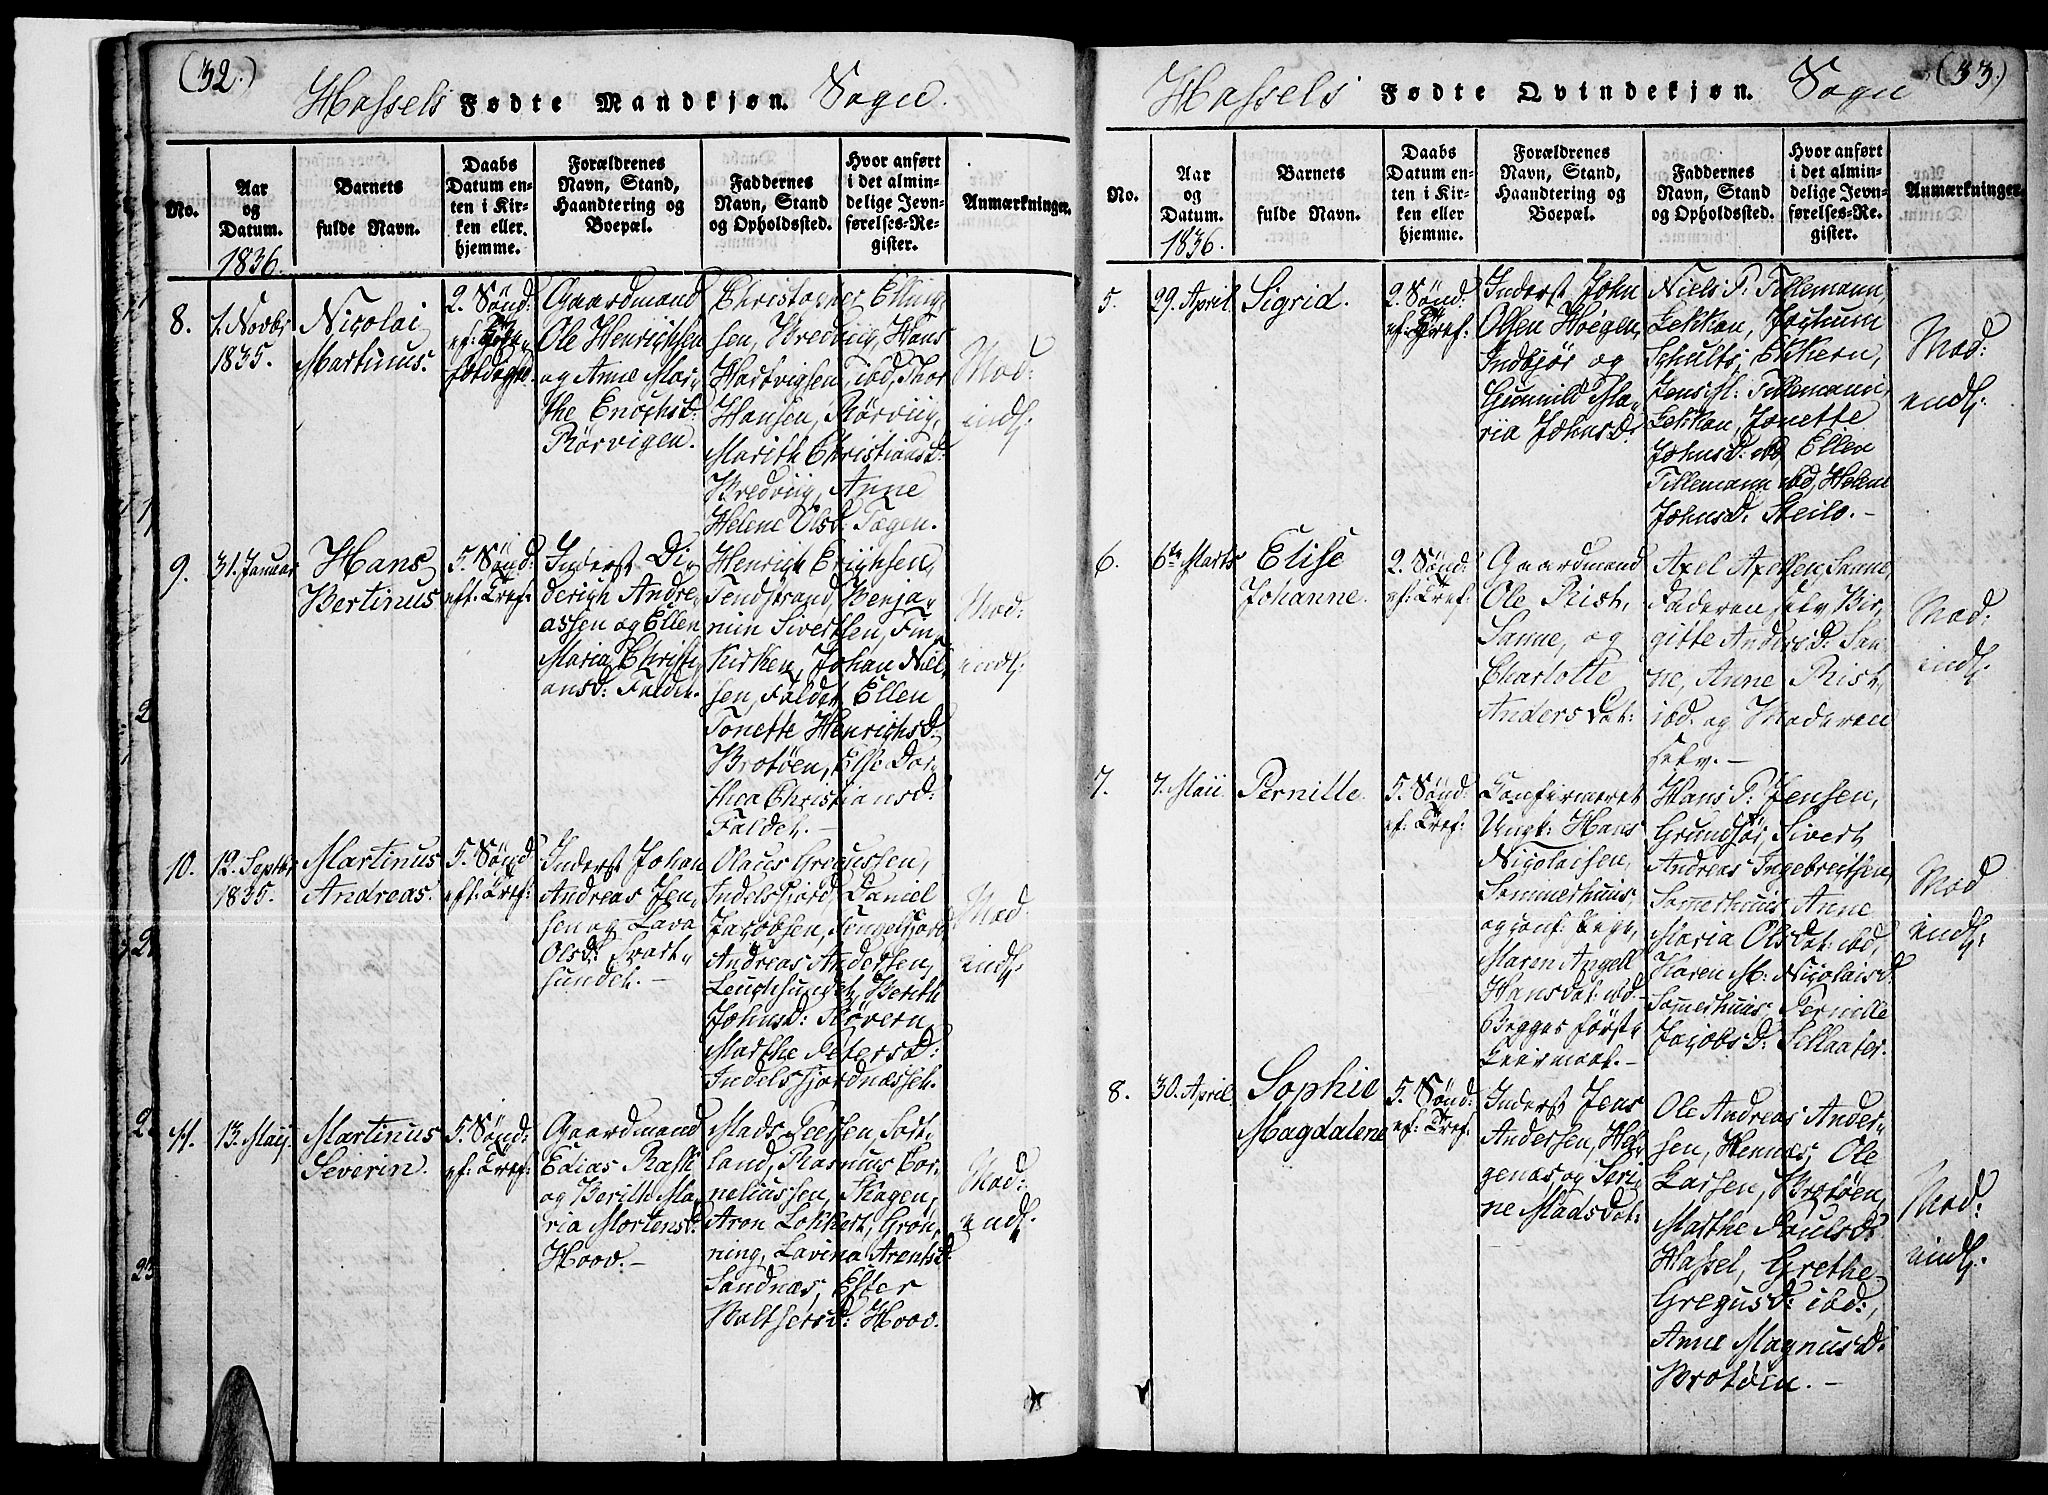 (32.)
Hassels Fødte Mandkjøn. Sogn.
No.
Aar og Datum.
1836.
Barnets fulde Navn.
Daabs Datum enten i Kirken eller hjemme.
Forældrenes Navn, Stand, Haandtering og Boepæl.
Faddernes Navn, Stand og Opholdssted.
Hvor anført i det almindelige Jevnførelses-Register.
Anmærkninger.
8.
1. Novbr
1835.
Nicolai
Martinus.
2. Sønd:
Gaardmand
Ole Henrichsen
og Anne Mar„
the Enochsd:
Rørvigen.
Christopher Elling„
sen, Bredviig, Hans
Hartvigsen, ibd, Thor
Hansen, Rørviig,
Marith Christiansd:
Bredviig, Anne
Helene Olsd: Tøgen.
Mod:
indl:
9.
31. Januar
Hans
Bertinus
5. Sønd:
eft: Tref:
Inderst Di„
derich Andre„
assen og Ellen
Maria Christi„
ansd: Faldet.
Henrich Erichsen,
Tendstrand, Benja„
min Sivertsen, Fin„
kirken, Johan Niel„
sen, Faldet, Ellen
Tonette Henrichsd:
Brotøen, Else Dor„
thea Christiansd:
Faldet.—
Mod:
indl:
10.
12. Septbr
1835.
Martinus
Andreas.
5. Sønd:
eft: Tref:
Inderst Johan
Andreas Jen„
sen og Lava
Olsd: Svart„
sundet.—
Olaus Gregussen,
Indelsfjord, Daniel
Jacobsen, Ingelsfjord
Andreas Andersen,
Berith
Johnsd:
Marthe Petersd:
Indelsfjordnæsset.
Mod:
indl:
11.
13. Maij
Martinus
Severin.
5. Sønd:
ef: Tref:
Gaardmand
Edias Rasch
og Berith Ma„
ria Mortensd:
Hood.—
Mads Peersen, Sort„
land, Rasmus Cor„
neliussen, Skagen,
Aron Lokkert, Grøn„
ning, Lavina Arentsd:
Sandnæs, Ester
Balthersd: Hood.
Mod:
indl:
(33.)
Hassels Fødte Qvindekjøn. Sogn
No.
Aar og Datum.
1836.
Barnets fulde Navn.
Daabs Datum enten i Kirken eller hjemme.
Forældrenes Navn, Stand, Haandtering og Boepæl.
Faddernes Navn, Stand og Opholdssted.
Hvor anført i det almindelige Jevnførelses-Register.
Anmærkninger.
5.
29. April
Sigrid.
2. Sønd:
ef: Tref:
Inderst John
Olsen Høegen,
Indbjør og
Gunnild Ma„
ria Johnsd:
Niels P: Tillemann,
Jekkan, Jochum
Schults, Ekkern,
Jens M: Tillemann
Jekkan, Jonette
Johnsd: ibd, Ellen
Tillemann ibd, Helene
Johnsd: Steilo.—
Mod:
indl:
6.
6te Marts
Elise
Johanne.
2. Sønd:
ef: Tref:
Gaardmand
Ole Rist,
Sanne, og
Charlotte
Andersdat:
Axel Axelsen, Sanne,
Faderen selv, Bir„
gitte Andersd: San„
ne, Anne Rist,
ibd. og Moderen
selv.—
Mod:
indl:
7.
7. Maii
Pernille.
5. Sønd:
ef: Tref:
Confirmeret
Ungk: Hans
Nicolaisen,
Sommerhuus,
og conf: Pige,
Maren Angell
Hansdat: ibd—
Begges første
Leiermaal.—
Hans P: Jensen,
Grundfør, Sivert
Andreas Ingebregtsen,
Somerhuus, Anne
Maria Olsdat: ibd,
Karen M: Nicolaisd:
Somerhuus, Pernille
Jacobsd: Sellaater.
Mod
indl:
8.
30. April
Sophie
Magdalene
5. Sønd:
ef: Tref:
Inderst Jens
Andersen, Hen„
genæs, og Seri„
ne Madsdat:
Ole Andreas Ander„
sen, Hennæs, Ole
Larsen, Brotøen,
Marthe Paulsd:
Hassel, Grethe
Gregusd: ibd:,
Anne Magnusd:
Brotøen.—
Mod:
indl: